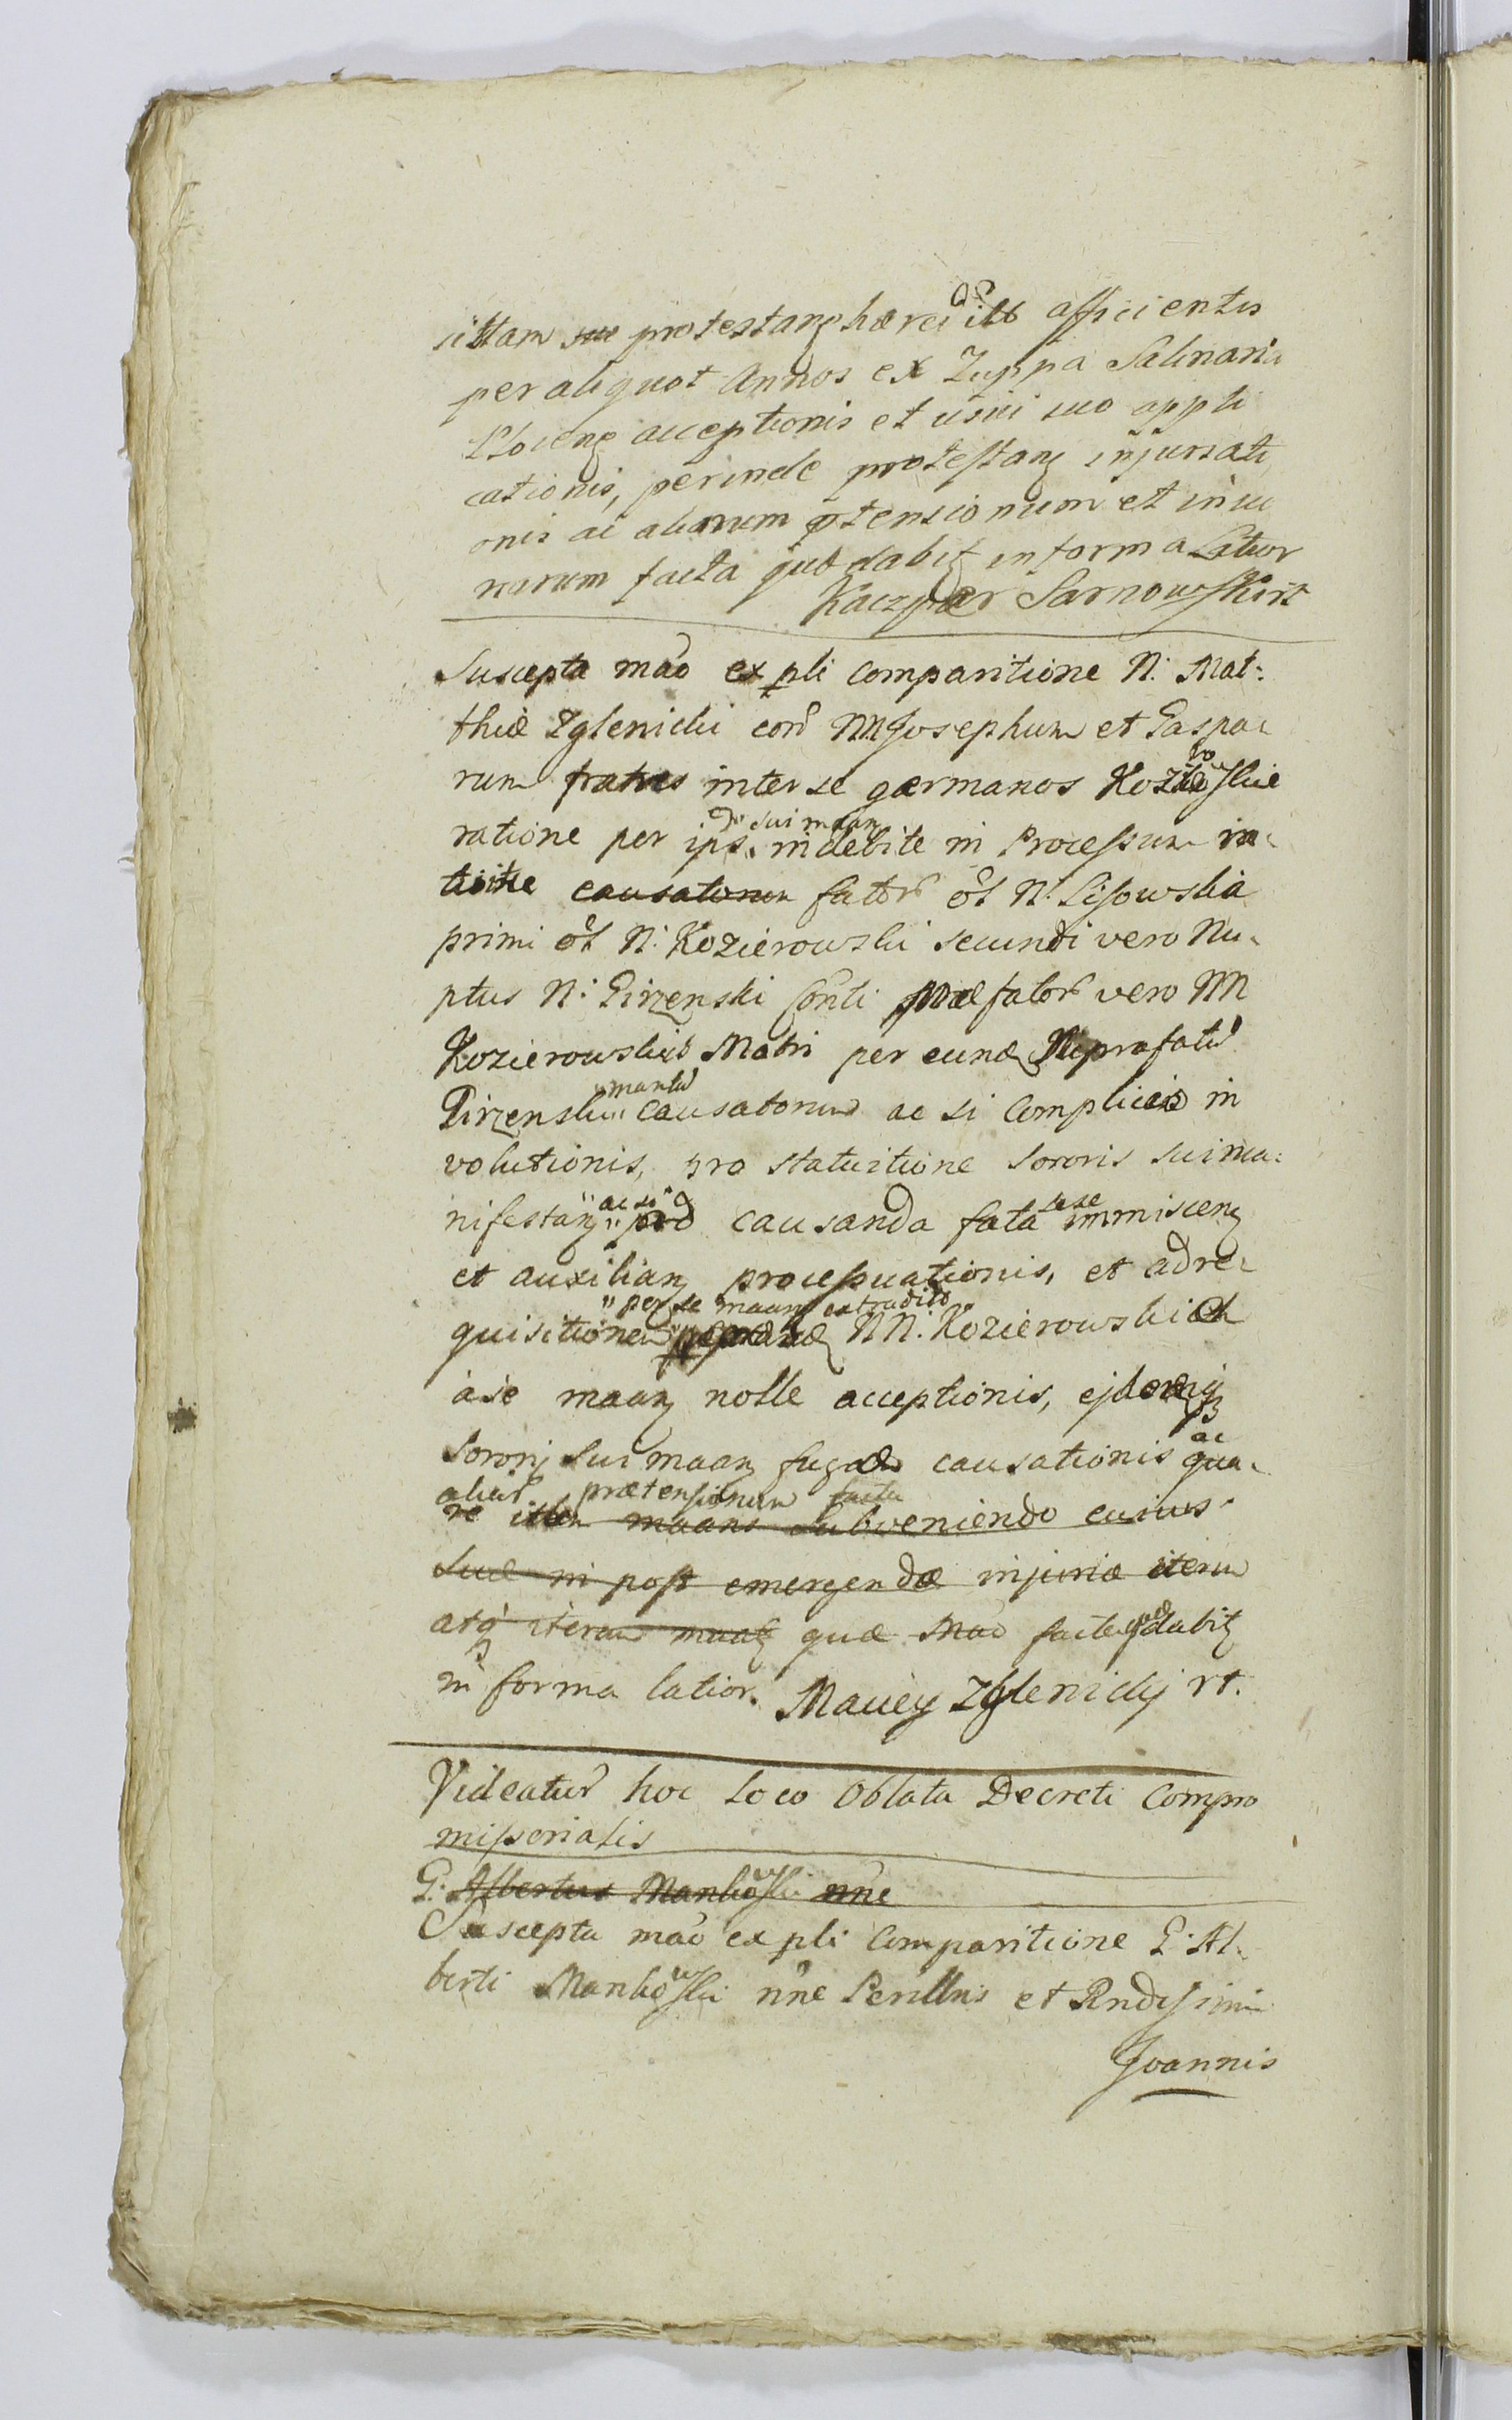 sittam protestanz hæredib afficientis
per aliquot Annos ex Zuppa Salinaria
Plocenz acceptionis et usui suo appli
cationis, perinde protestanz injuriati
onis ac aliarum ptensionum et inju
riarum facta qub dabitz in forma Latior
Kaczper Sarnowski rt
Suscepta mão ex pli comparitione N. Mat:
thiæ Zglenicki con NN Josephum et Gaspa
rum fratres inter se germanos
ratione per ips sui maan indebite in Processum in
causatorum fator ol N. Lisowska
primi ol N. Kozierowski secundi vero Nu
ptus N. Pirzenski Conti præfator vero NN
Kozierowskich Matri per eund præfatu
Pirzenski causatorum ac si complicis in
volutionis, pro statuitione sororis sui ma:
nifestanz "ac si" causanda fata sese immiscenz
et auxilianz processuationis, et ad re
quisitionem "per se maanz extradito" NN. Kozierowskich
a se maanz nolle acceptionis,
Soror sui maanz fugæ causationis ac qua
aliar prætensionum facta
re maans Subveniendo cuius
Suæ in post emergendæ injuriæ iterum
atq iterum maatz quæ mão facta qub dabitz
in forma latior. Maciey Zglenicky rt.
Videatur hoc loco Oblata Decreti Compro
missorialis
G. Albertus Mankowski nne
Suscepta mão ex pli Comparitione G. Al
berti Mankowski nne Perillris et Rndissimi
Joannis